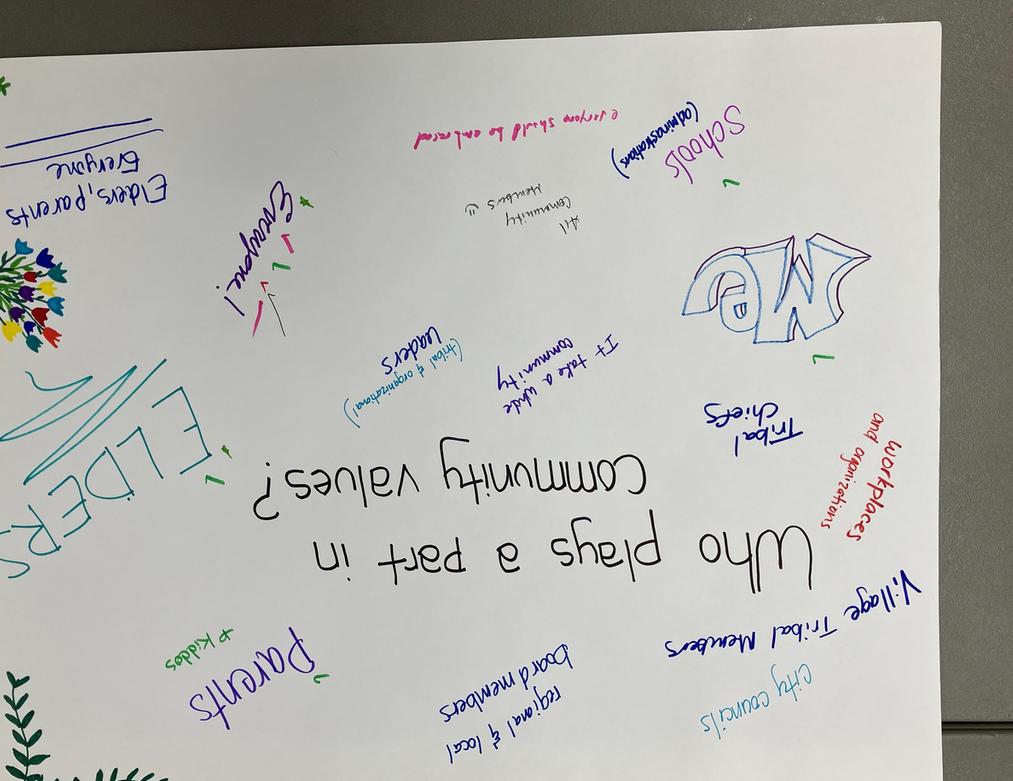 city councils
regional & local
board members
Parents
+ kiddos
Village Tribal Members
Who plays a part in
Community values?
workplaces
and organizations
ELDERS
Tribal
Chiefs
It take a whole
community
Leaders
(tribal & organizational)
Me
Everyone!
All
Community
Members
Schools
(administrations)
everyone should be embraced
Elders, parents
Everyone